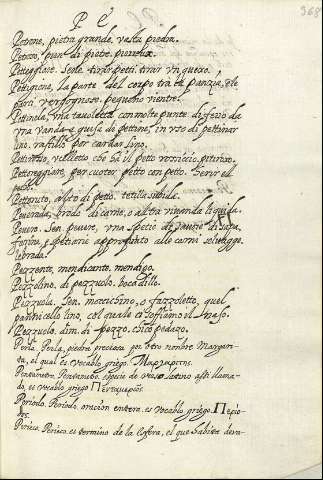 P E
368
Petrone, pietra grande, vasta piedra.
Petroso, pien di pietre, piedregoso.
Petteggiare. Senese. tirar petti. tirar un quero.
Pettignone, la parte del corpo tra la panza, e le
parti vergognose. pequeño vientre.
Pettinella, una tauoletta con molte punte di ferro da
una banda a guisa de pettine, in uso di pettinar
lino. rastillo per cardar lino.
Pettirosso, uccelletto che ha il petto rossiccio, pitirroxo.
Pettoreggiare, percuoter petto con petto. Herir el
pecho.
Pettoruto, alto di petto. tetilla subida.
Peuerada, brodo di carne, o altra vivanda liquida.
Peuero. Sen. peuere, una specie di
lebrada.
Pezzente, mendicante, mendigo.
Pezzolino, di pezzuolo, bocadillo.
Pezzuola. Sen. moccichino, o fazzoletto, quel
pannicello lino, col quale ci soffiamo il naso.
Pezzuolo, dim. di pezzo, esito pedazo.
Perla. Perla, piedra preciosa por otro nombre Margari-
ta, el qual es vocablo griego. Μαργαριτης.
especie de vaso latino assi llama-
do, es vocablo griego
Periodo. Periodo. oracion entera. es vocablo griego. Περίο-
δος.
Perieco. Perieco. es termino de la Esfera, el que habita deva-